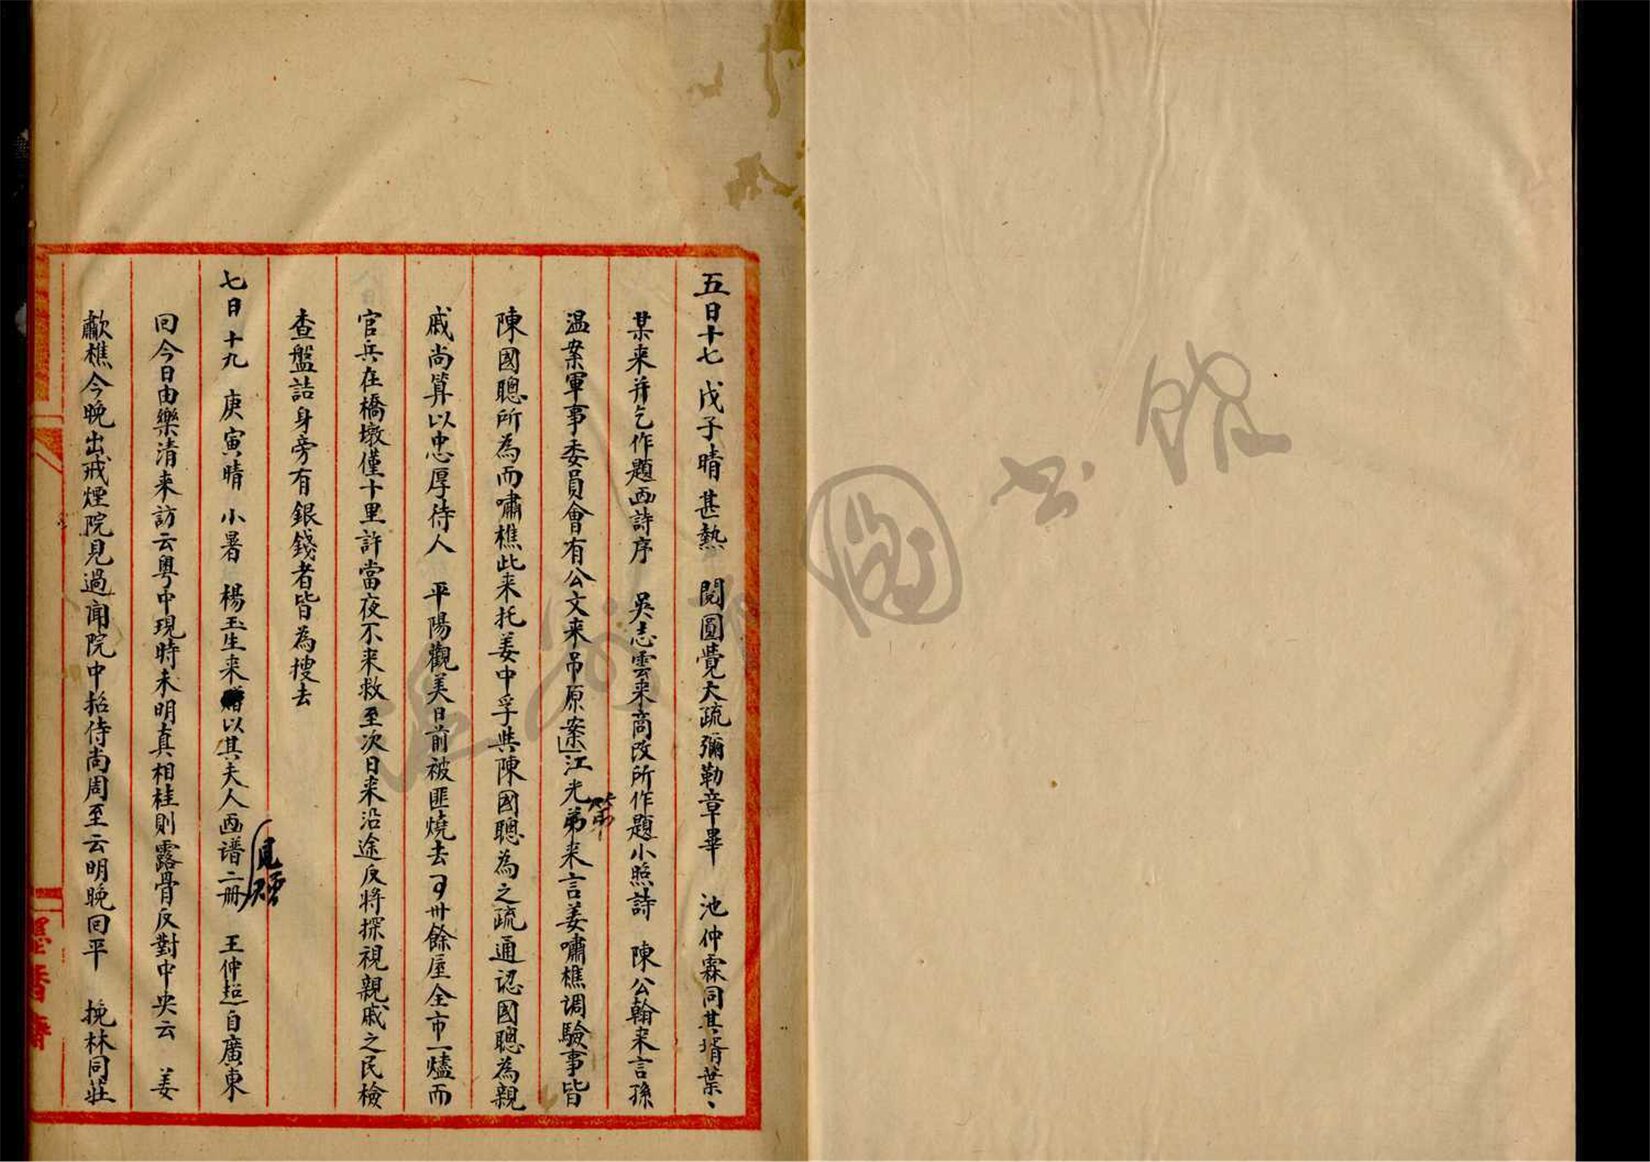 五日十七 戊子晴甚熱 閱圓覺大疏彌勒章畢 池仲霖同其壻葉、
某来并乞作題画詩序 吳志雲来商改所作題小照詩 陳公翰来言孫
温案軍事委員會有公文来吊原案」江光弟来言姜嘯樵調驗事皆
第
陳國聰所為而嘯樵此来托姜中孚與陳國聰為之疏通認國聰為親
戚尚算以忠厚待人 平陽觀美日前被匪燒去 卅餘屋全市一燼而
官兵在橋墩僅十里許當夜不来救至次日来沿途反將探視親戚之民檢
查盤詰身旁有銀錢者皆為搜去
七日十九 庚寅晴 小暑 楊玉生来 以其夫人画谱二册 王仲超自廣東
見贈
回今日由樂清来訪云粵中現時未明真相桂則露骨反對中央云 姜
歗樵今晚出戒煙院見過聞院中招待尚周至云明晚回平 挽林同莊
墨香齋
書